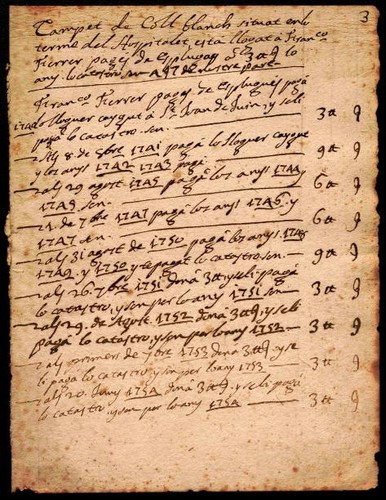 3
Campet de Coll blanch situat en lo
terme del Hospitalet, esta llogat á Franco
Ferrer pages de Esplugas 3 ll lo
any. lo catastro
Franco Ferrer pages de Esplugues pagá
lo lloguer caygut á St Juan de Juin, y se li
pagá lo catastro, son. 3 ll
Als 8 de 1741 pagá lo lloguer caygut
y los anys 1742 1743 pagá 9 ll
als 29 agost 1745 pagá los anys 1744
1745 son. 6 ll
de 7bre 1747 pagá los anys 1746. y
1747 son 6 ll
als 31 agost de 1750 pagá los anys 1748
1749. y 1750 y se pagá lo catastro, son. 9 ll
als 26. 7bre 1751 doná 3 ll y se li pagá
lo catastro, y son per lo any 1751 son 3 ll
als 29. de Agost. 1752 doná 3 ll, y se li
pagá lo catastro, y son per lo any 1752 3 ll
als primers de 1753 doná 3 ll, y se
li pagá lo catastro, y son per lo any 1753 3 ll
als 20. 1754 doná 3 ll. y se li pagá
lo catastro, y son per lo any 1754 3 ll